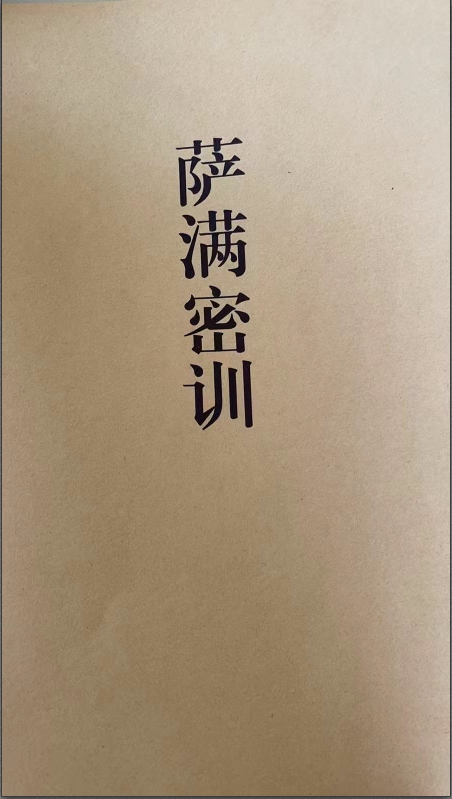 萨满密训